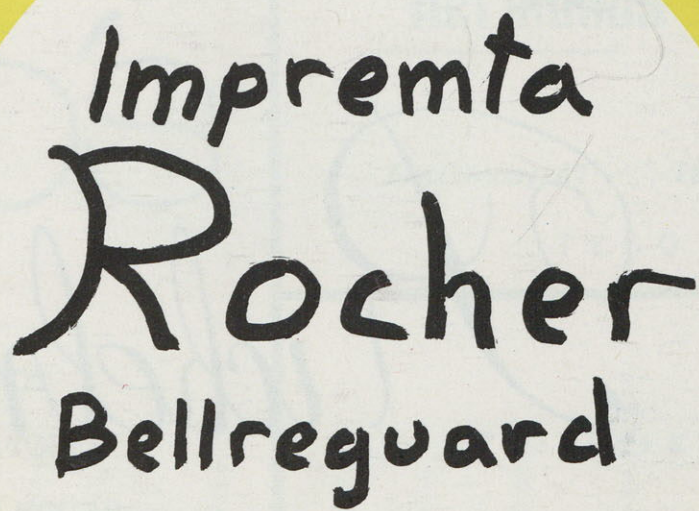 Impremta
Rocher
Bellreguard